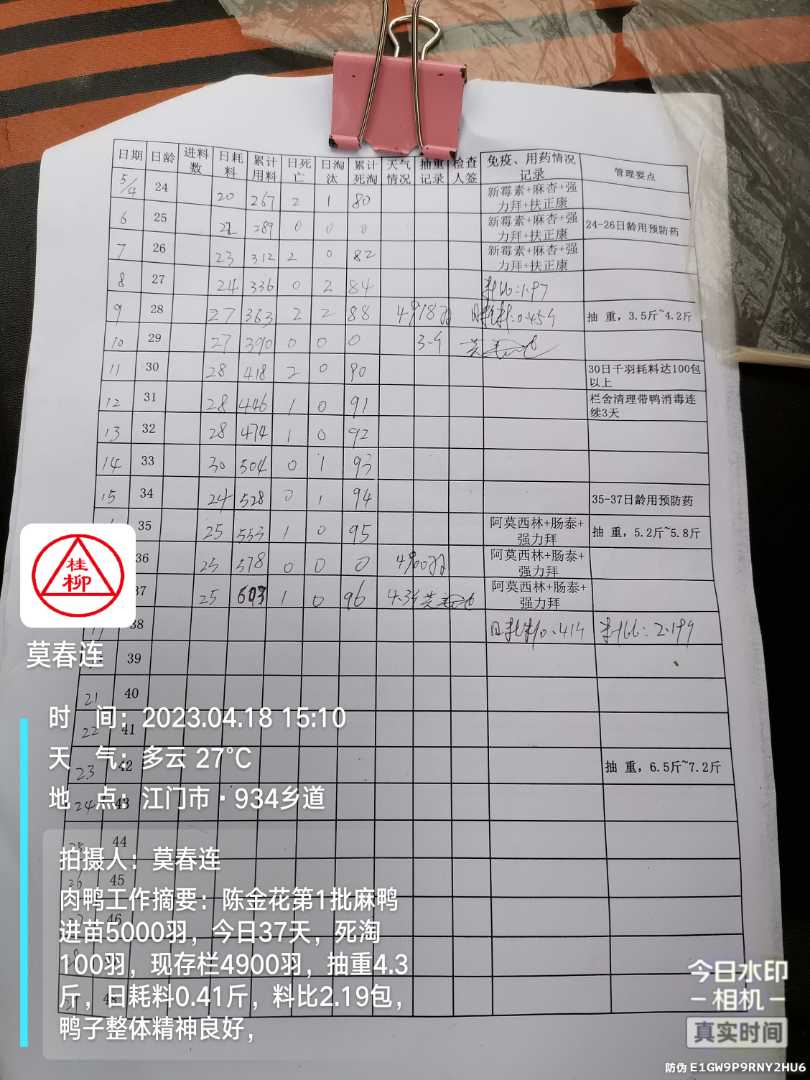 日期 日龄 进料数 日耗料 累计用料 日死亡 日淘汰 累计死淘 天气情况 抽重记录 检查人签 免疫、用药情况记录 管理要点
5/4 24 20 267 2 1 80 新霉素+麻杏+强力拜+扶正康
6 25 22 289 0 0 0 新霉素+麻杏+强力拜+扶正康 24-26日龄用预防药
7 26 23 312 2 0 82 新霉素+麻杏+强力拜+扶正康
8 27 24 336 0 2 84 料比:1.97
9 28 27 363 2 2 88 4918羽 日耗料:0.45斤 抽 重,3.5斤~4.2斤
10 29 27 390 0 0 0 3.斤
11 30 28 418 2 0 90 30日千羽耗料达100包以上
12 31 28 446 1 0 91 栏舍清理带鸭消毒连续3天
13 32 28 474 1 0 92
14 33 30 504 0 1 93
15 34 24 528 0 1 94 35-37日龄用预防药
35 25 553 1 0 95 阿莫西林+肠泰+强力拜 抽 重,5.2斤~5.8斤
36 25 578 0 0 0 4900羽 阿莫西林+肠泰+强力拜
37 25 603 1 0 96 4.3斤 阿莫西林+肠泰+强力拜
38 日耗料0.41斤 料比:2.19
39
21 40
41
23 42 抽 重,6.5斤~7.2斤
24 43
44
45
46
桂柳
莫春连
时 间:2023.04.18 15:10
天 气:多云 27°C
地 点:江门市·934乡道
拍摄人:莫春连
肉鸭工作摘要:陈金花第1批麻鸭
进苗5000羽,今日37天,死淘
100羽,现存栏4900羽,抽重4.3
斤,日耗料0.41斤,料比2.19包,
鸭子整体精神良好,
今日水印
相机
真实时间
防伪 E1GW9P9RNY2HU6